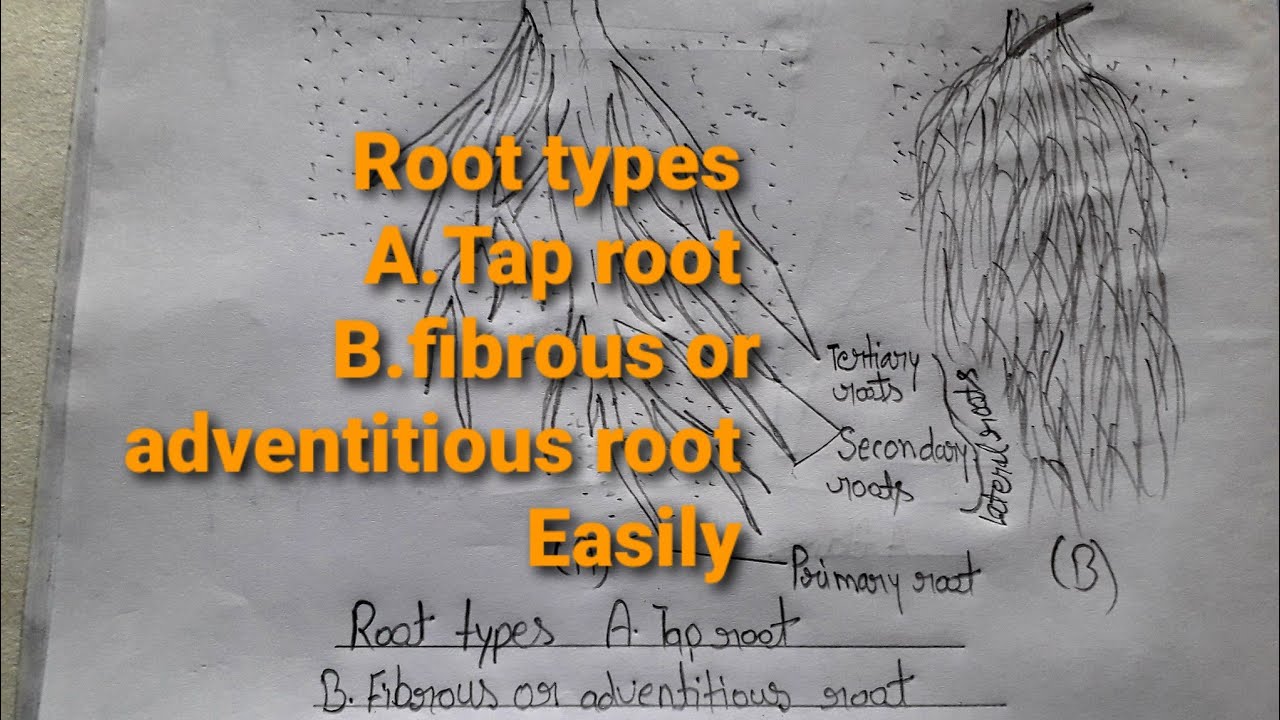 Root types
A.Tap root
B.fibrous or
adventitious root
Easily
Tertiary
roots
Secondary
roots
Lateral roots
Primary root
(A)
(B)
Root types A. Tap root
B. Fibrous or adventitious root